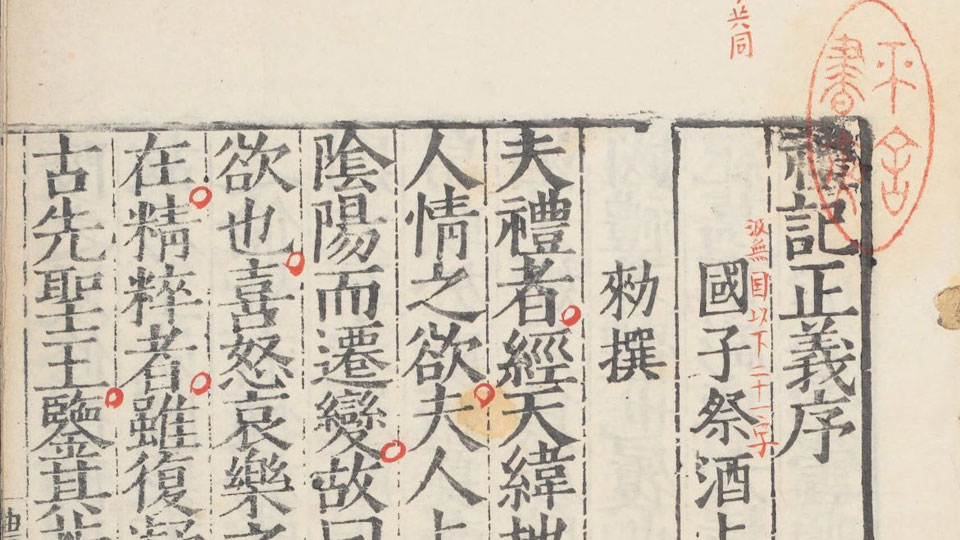 共同
禮記正義序
汲無国以下二十一字
國子祭酒上
勑撰
夫禮者經天緯地
人情之欲夫人上
陰陽而遷變故曰
欲也喜怒哀樂之
在精粹者雖復凝
古先聖王鑒其